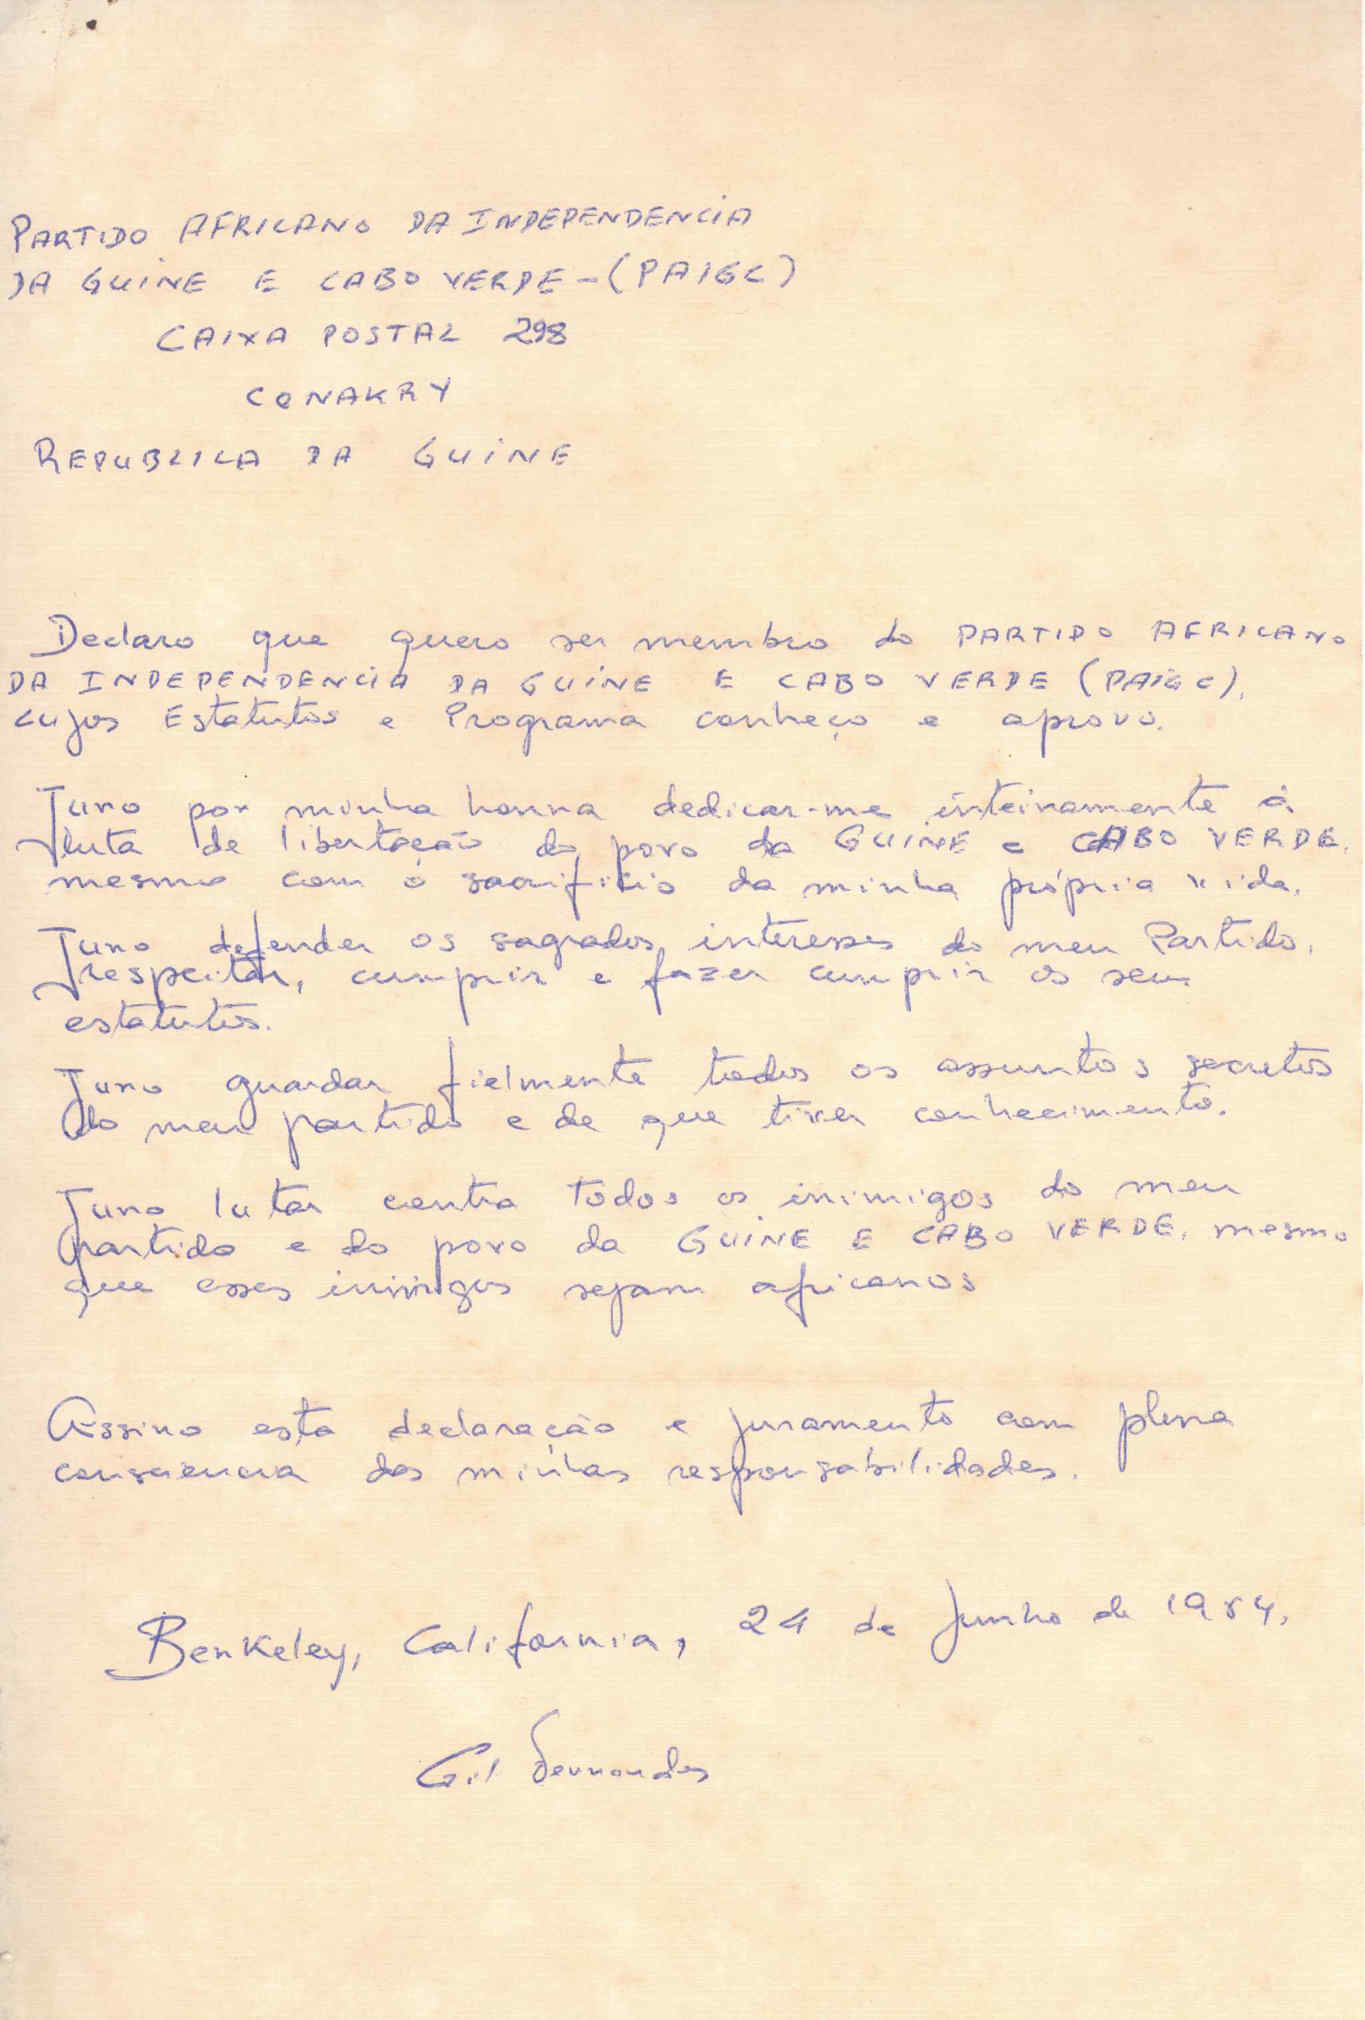 PARTIDO AFRICANO DA INDEPENDENCIA
DA GUINE E CABO VERDE - (PAIGC)
CAIXA POSTAL 298
CONAKRY
REPUBLICA DA GUINE
Declaro que quero ser membro do PARTIDO AFRICANO
DA INDEPENDENCIA DA GUINE E CABO VERDE (PAIGC),
cujos Estatutos e Programa conheço e aprovo.
Juro por minha honra dedicar-me inteiramente á
luta de libertação do povo da GUINE e CABO VERDE,
mesmo com o sacrificio da minha própria vida.
Juro defender os sagrados interesses do meu Partido,
respeitar, cumprir e fazer cumprir os seus
estatutos.
Juro guardar fielmente todos os assuntos secretos
do meu partido e de que tiver conhecimento.
Juro lutar contra todos os inimigos do meu
partido e do povo da GUINE E CABO VERDE, mesmo
que esses inimigos sejam africanos
Assino esta declaração e juramento com plena
consciencia das minhas responsabilidades.
Berkeley, California, 24 de Junho de
Gil Fernandes